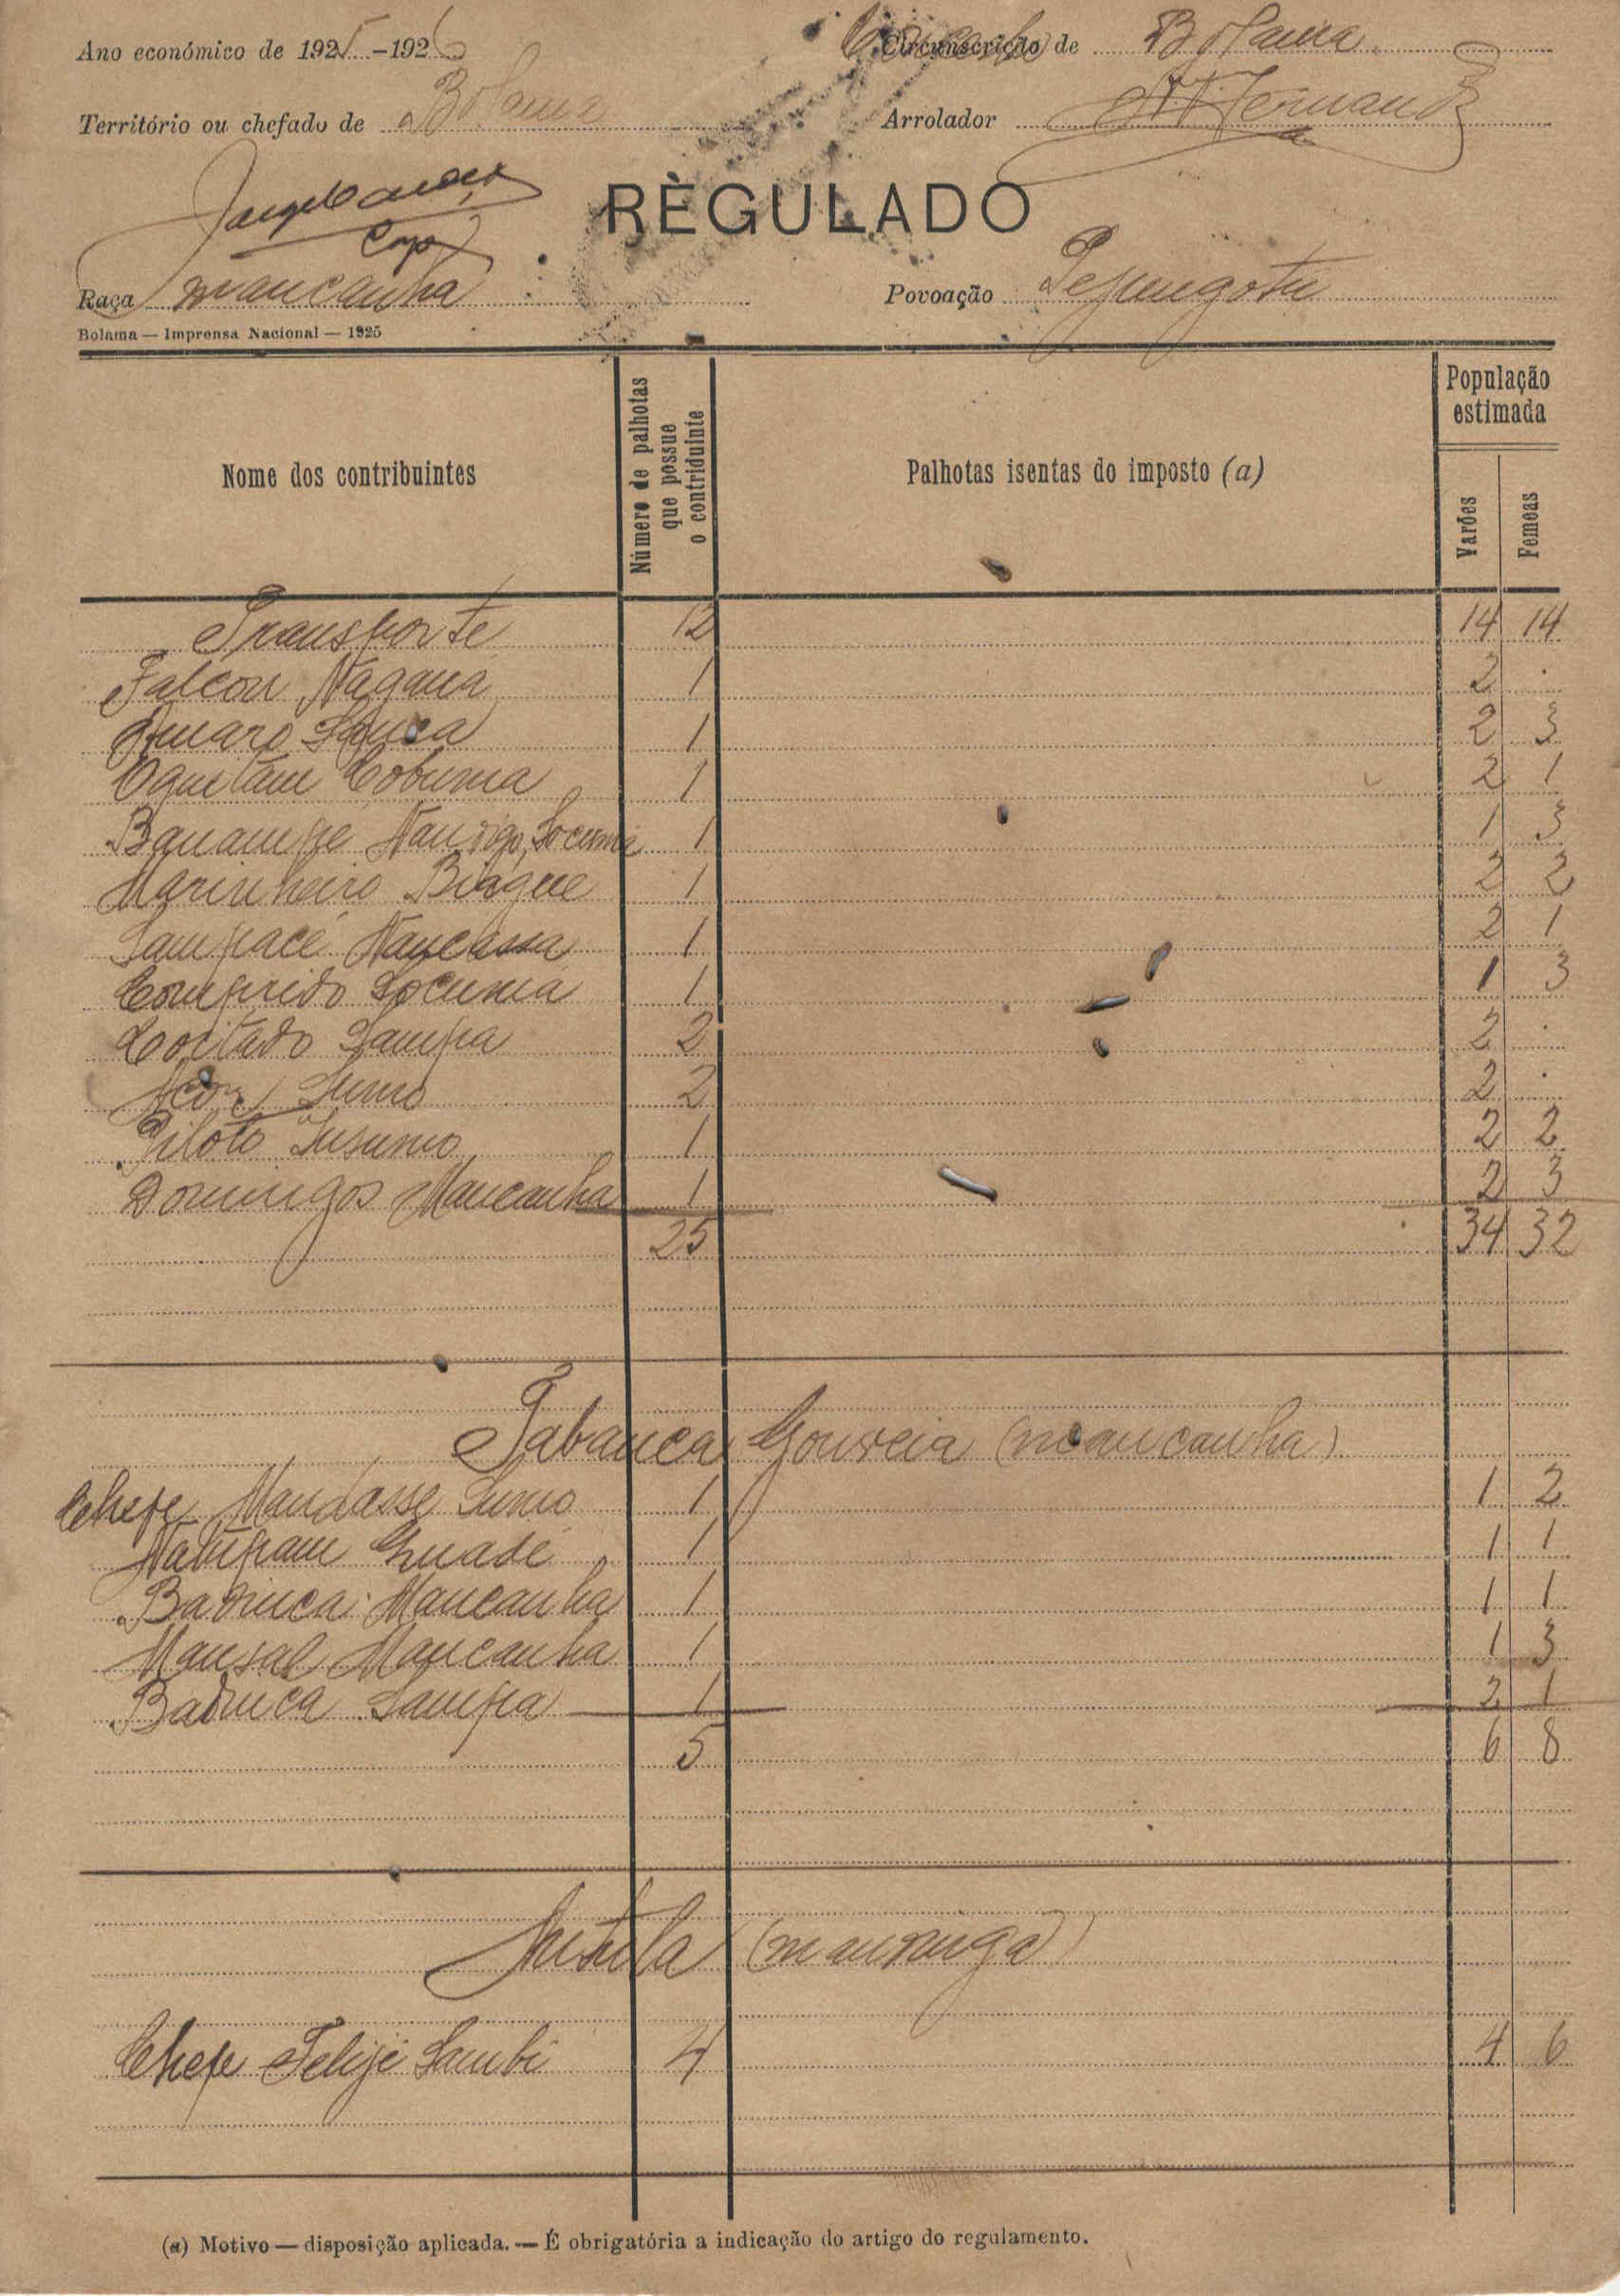 Ano económico de 1925-1926
Concelho Circunscrição de Bolama
Território ou chefado de Bolama
Arrolador Fernandz
RÈGULADO
Raça mancanha
Povoação
Bolama — Imprensa Nacional — 1925
Nome dos contribuintes
Número de palhotas
que possue
o contriduinte
Palhotas isentas do imposto (a)
População
estimada
Varões
Femeas
Transporte 12 14 14
Falcon Nagana 1 2 .
Amaro 1 2 3
Cobuma 1 2 1
Locumé 1 1 3
Marinheiro Biague 1 2 2
Sampacé Nancassa 1 2 1
Comprido Locuma 1 1 3
Coitado Sampa 2 2 .
Sumo 2 2 .
Piloto Susumo 1 2 2
Domingos Mancanha 1 2 3
25 34 32
Tabanca Gouveia (mancanha)
Chefe Mandasse Sumo 1 1 2
Natupam 1 1 1
Badinca Mancanha 1 1 1
Mansal Mancanha 1 1 3
Badinca Sampa 1 2 1
5 6 8
(mandinga)
Chefe Felije Sambi 4 4 6
(a) Motivo — disposição aplicada. — É obrigatória a indicação do artigo do regulamento.